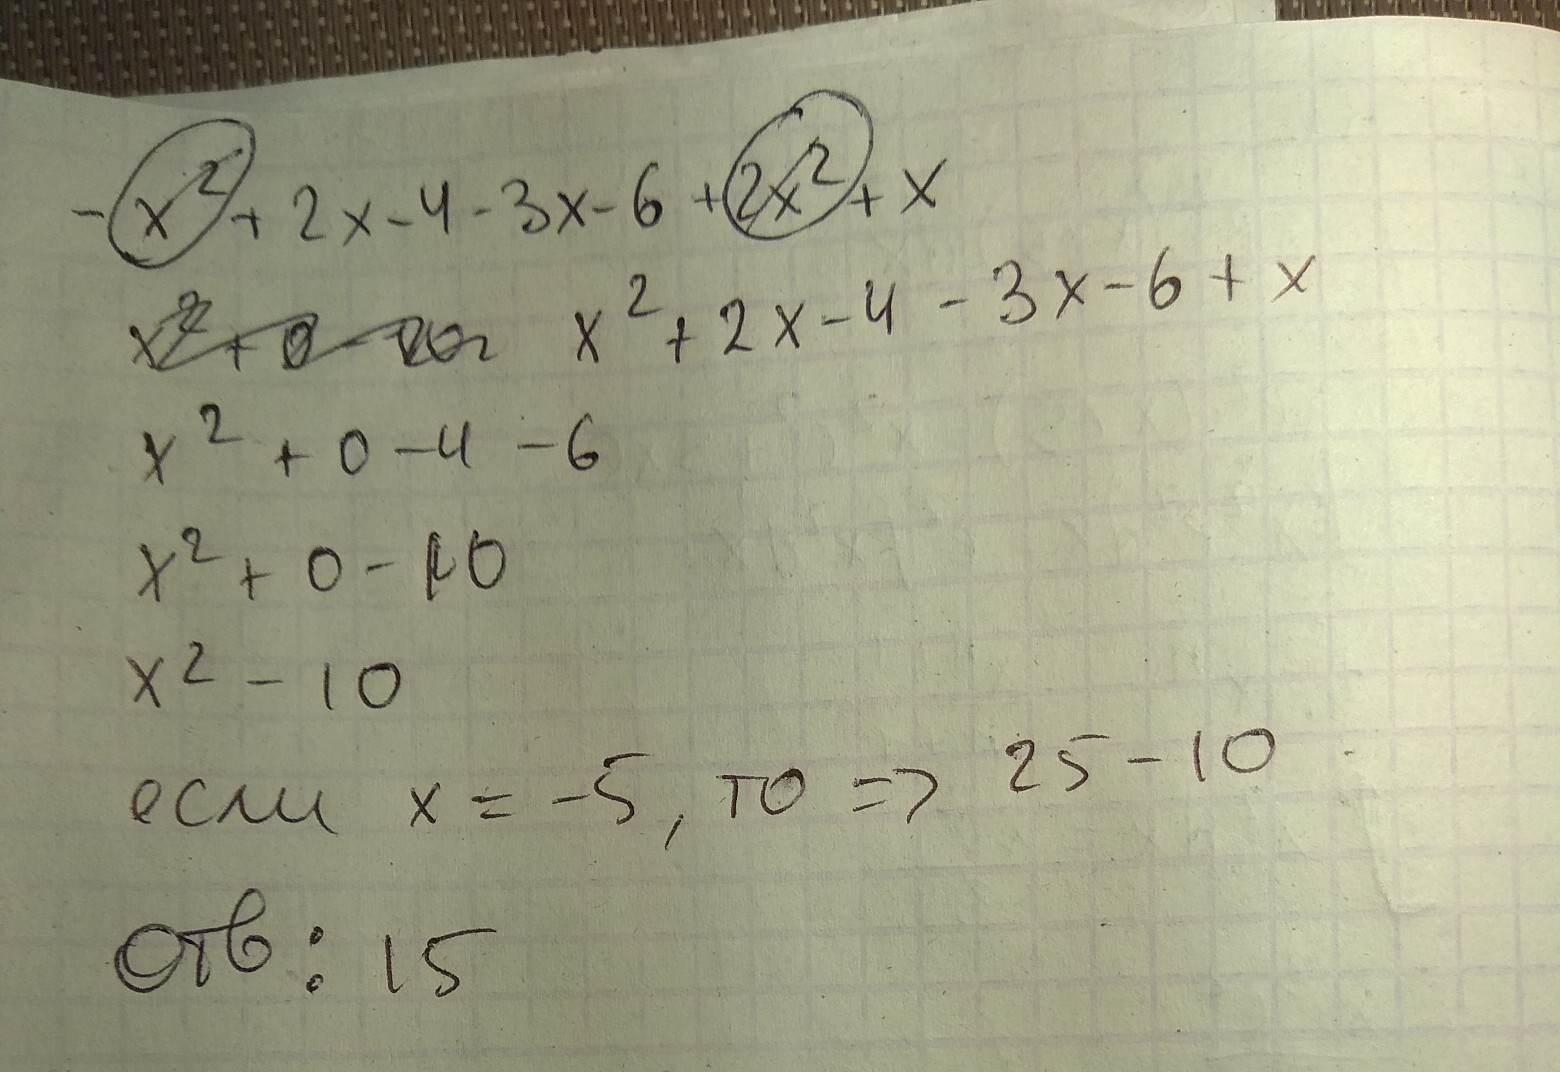 -x² + 2x - 4 - 3x - 6 + 2x² + x
x² + 2x - 4 - 3x - 6 + x
x² + 0 - 4 - 6
x² + 0 - 10
x² - 10
если x = -5, то => 25 - 10
Отв: 15